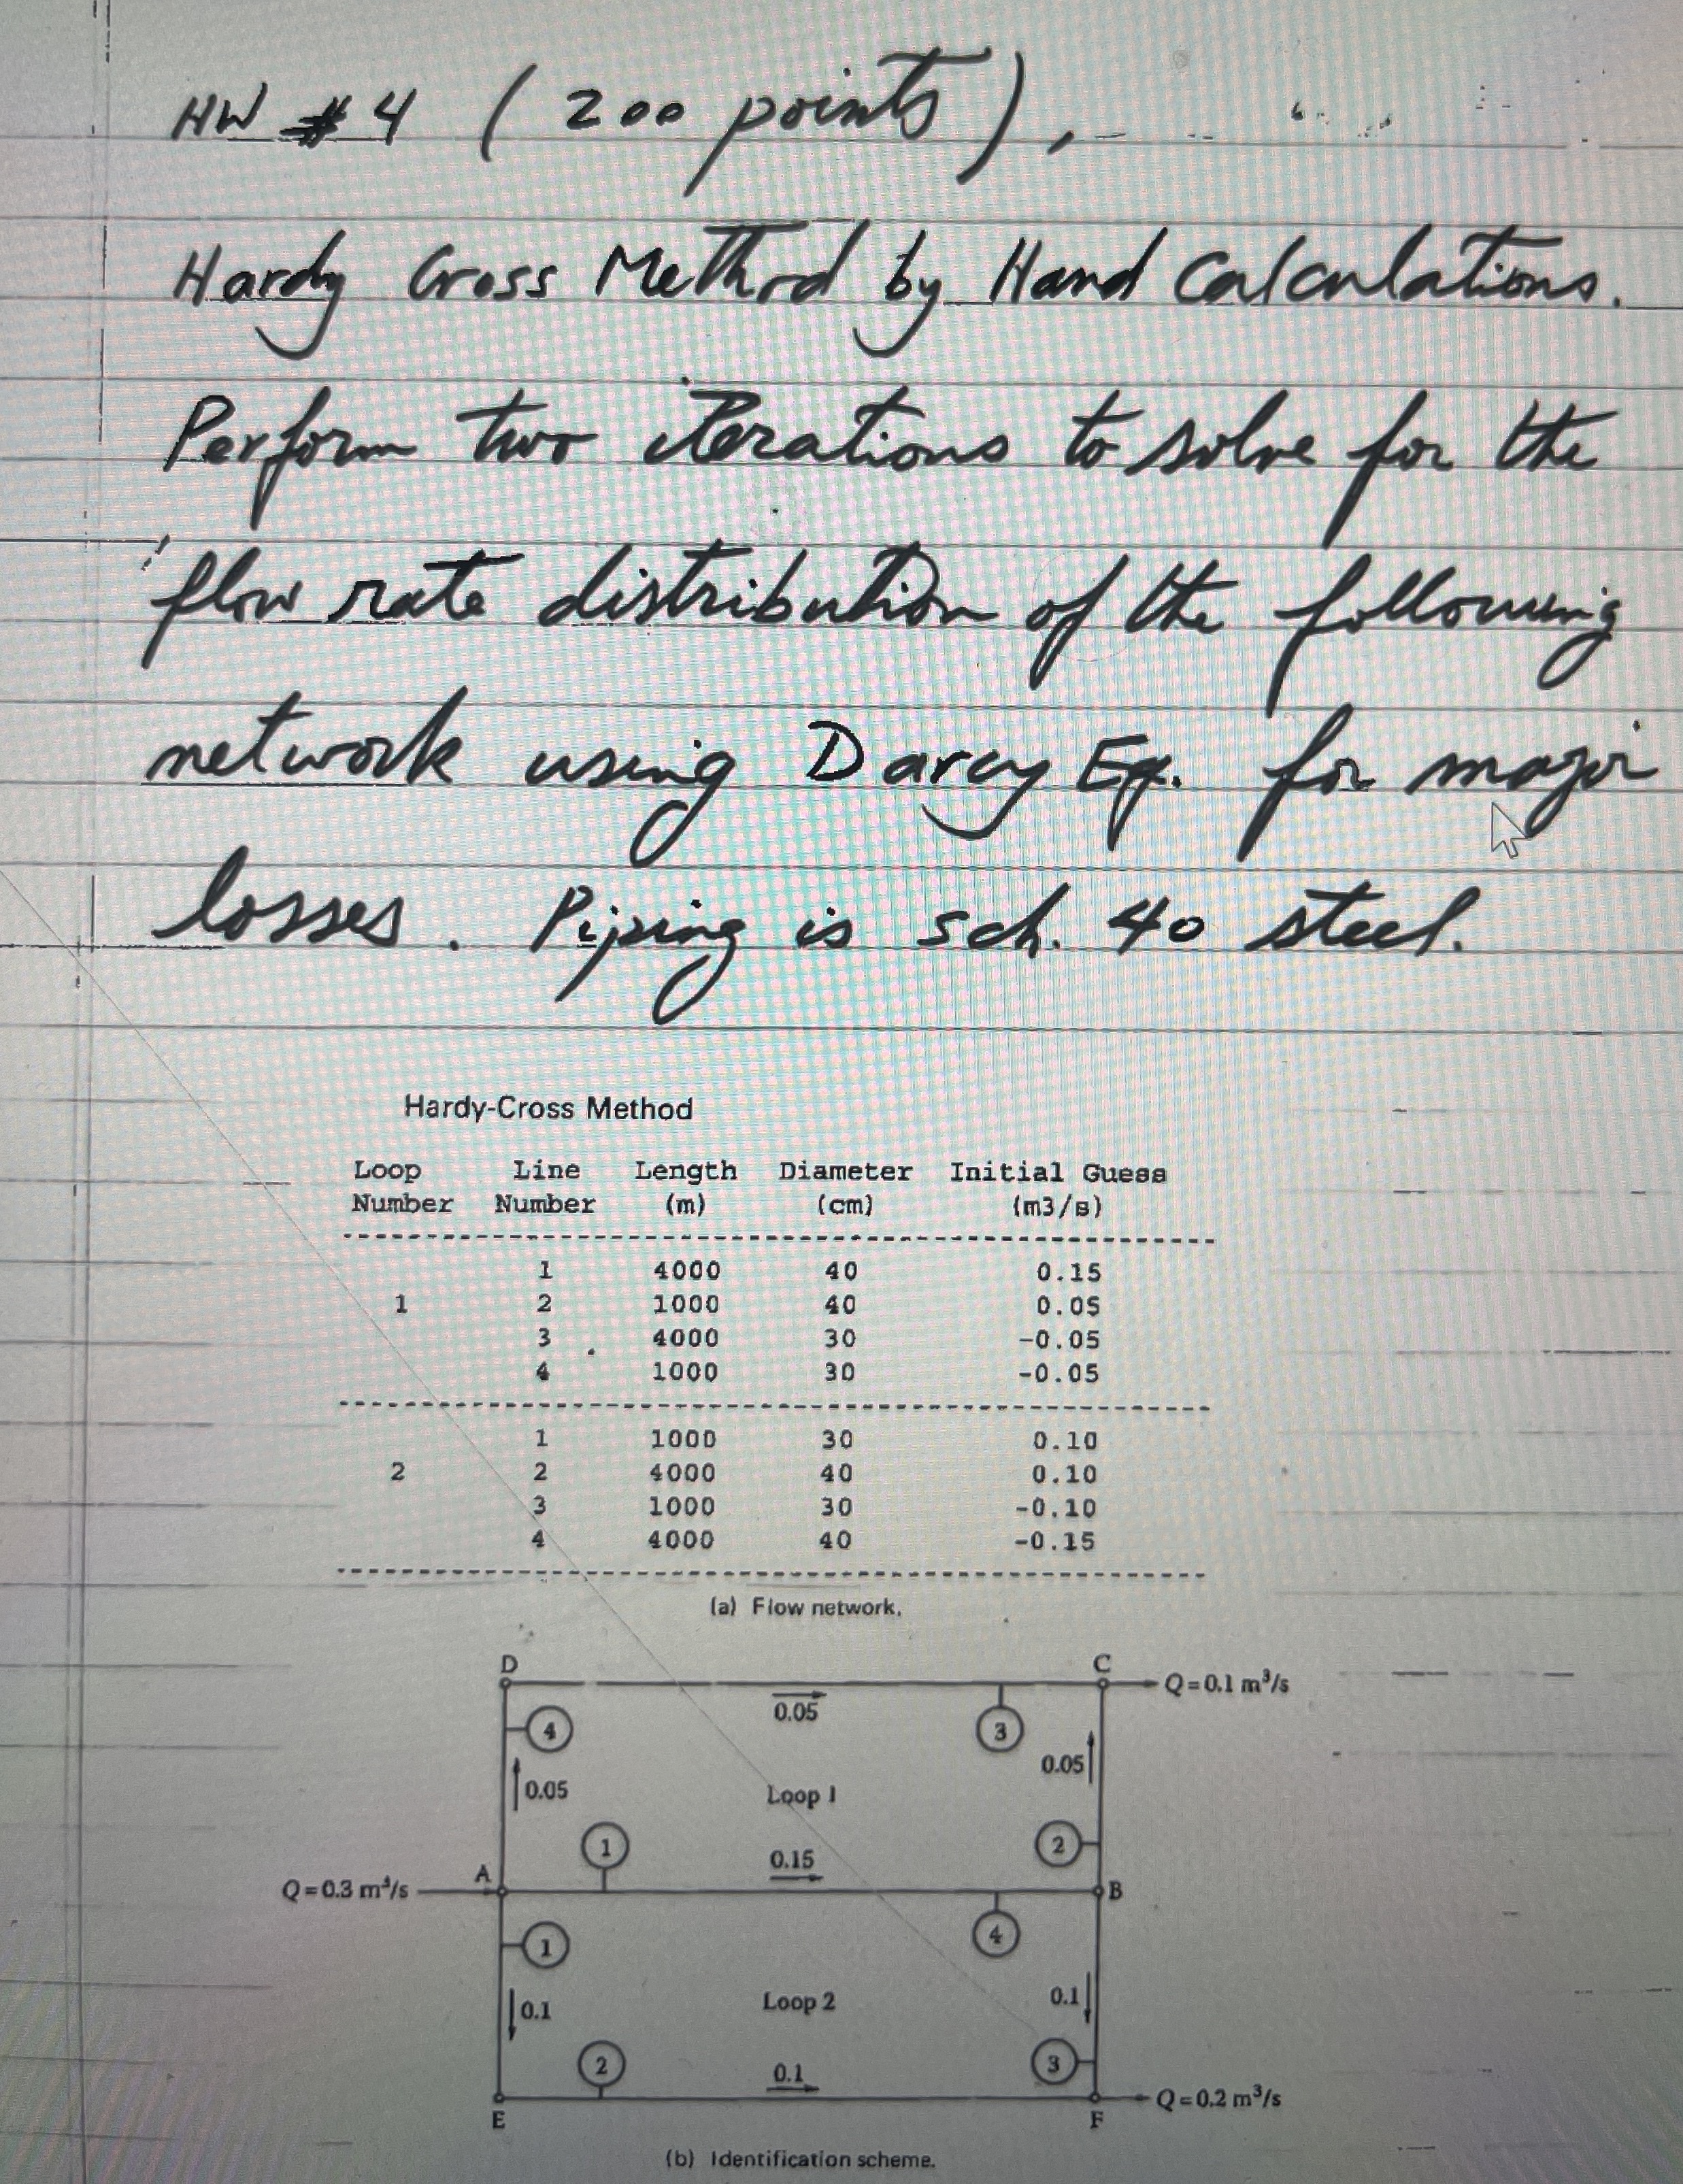 HW #4 (200 points),
Hardy Cross Method by Hand Calculations.
Perform two iterations to solve for the
flow rate distribution of the following
network using Darcy Eq. for major
losses. Piping is sch. 40 steel.
Hardy-Cross Method
Loop Line Length Diameter Initial Guess
Number Number (m) (cm) (m3/s)
1 4000 40 0.15
1 2 1000 40 0.05
3 4000 30 -0.05
4 1000 30 -0.05
1 1000 30 0.10
2 2 4000 40 0.10
3 1000 30 -0.10
4 4000 40 -0.15
(a) Flow network.
D C
Q=0.1 m³/s
0.05
4 3
0.05
0.05
Loop 1
1 2
0.15
A
Q=0.3 m³/s
B
4
1
Loop 2
0.1
0.1
2 3
0.1
Q=0.2 m³/s
E F
(b) Identification scheme.